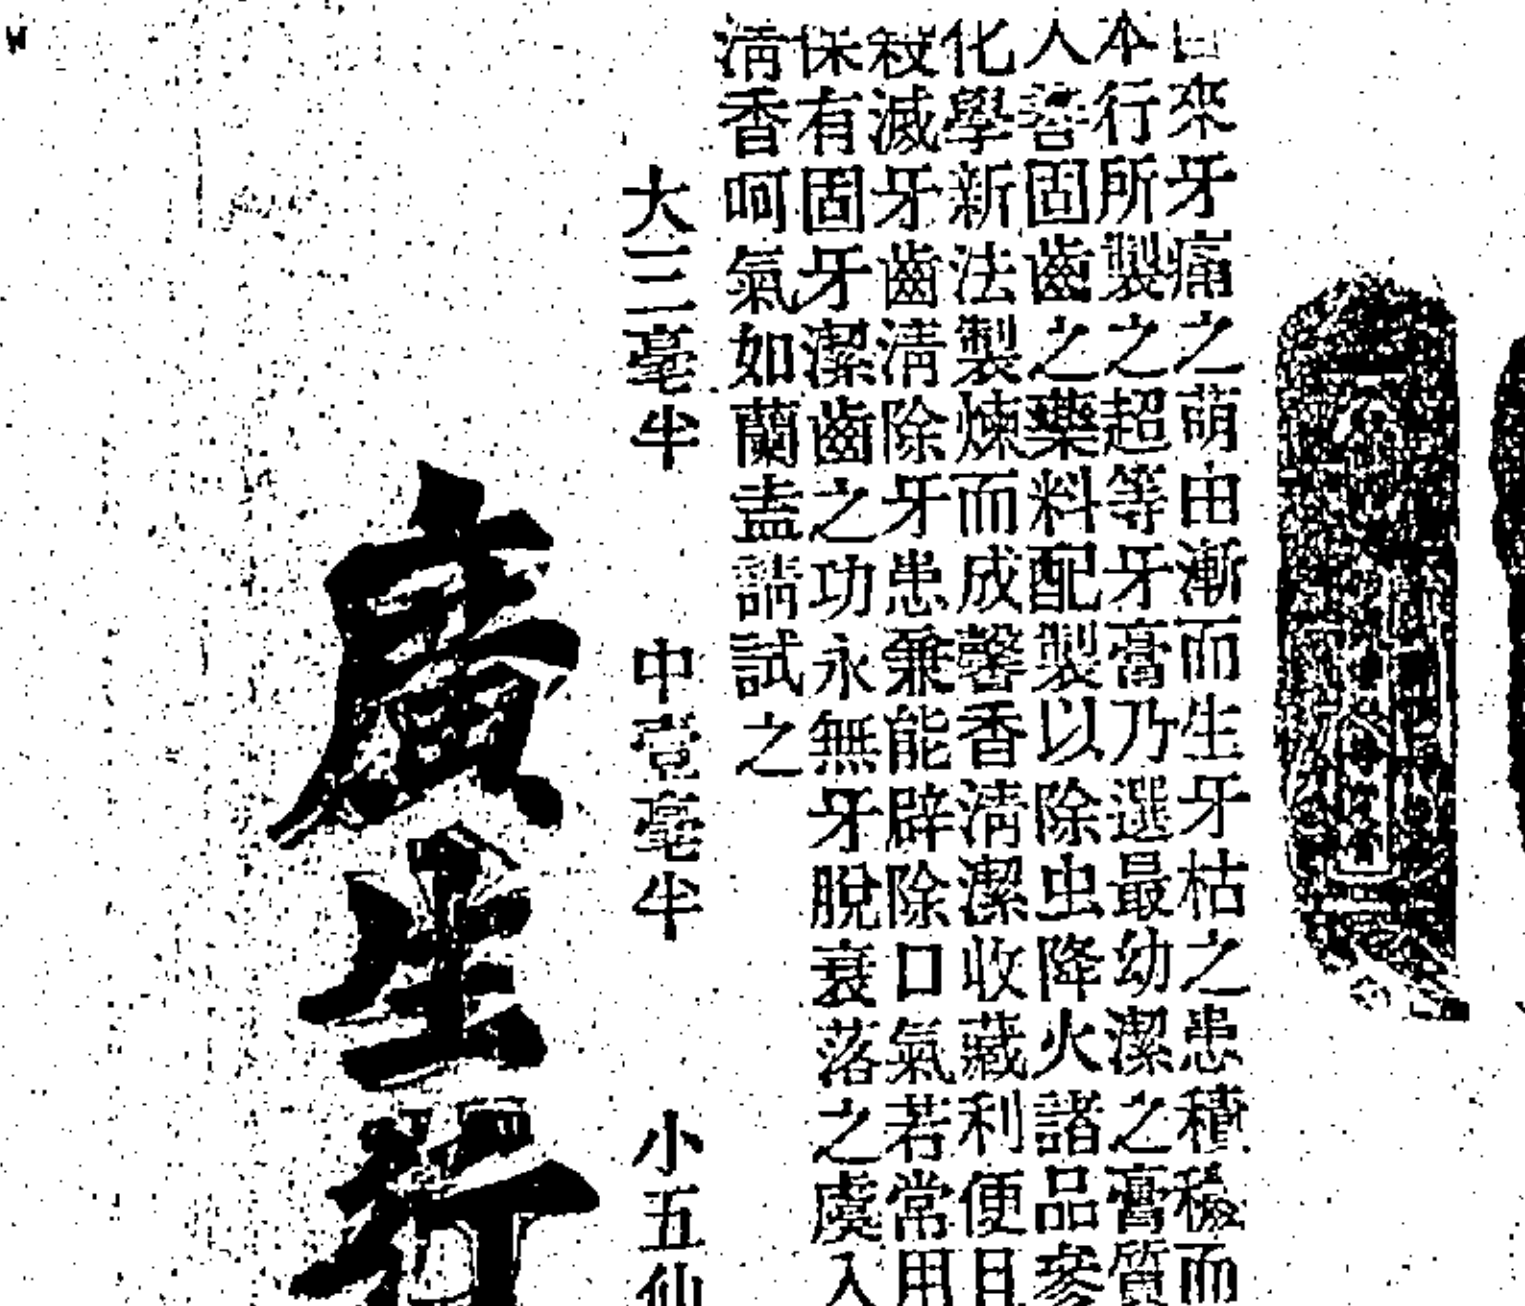 來牙痛之萌由漸而生牙枯之患積穢而
本行所製之超等牙膏乃選最幼潔之膏質
人善固齒之藥料配製以除虫降火諸品參
化學新法製煉而成馨香淸潔收藏利便且
殺滅牙齒淸除牙患兼能辟除口氣若常用
保有固牙潔齒之功永無牙脫衰落之虞入
淸香呵氣如蘭盍請試之
大三毫半 中壹毫半 小五仙
廣生行